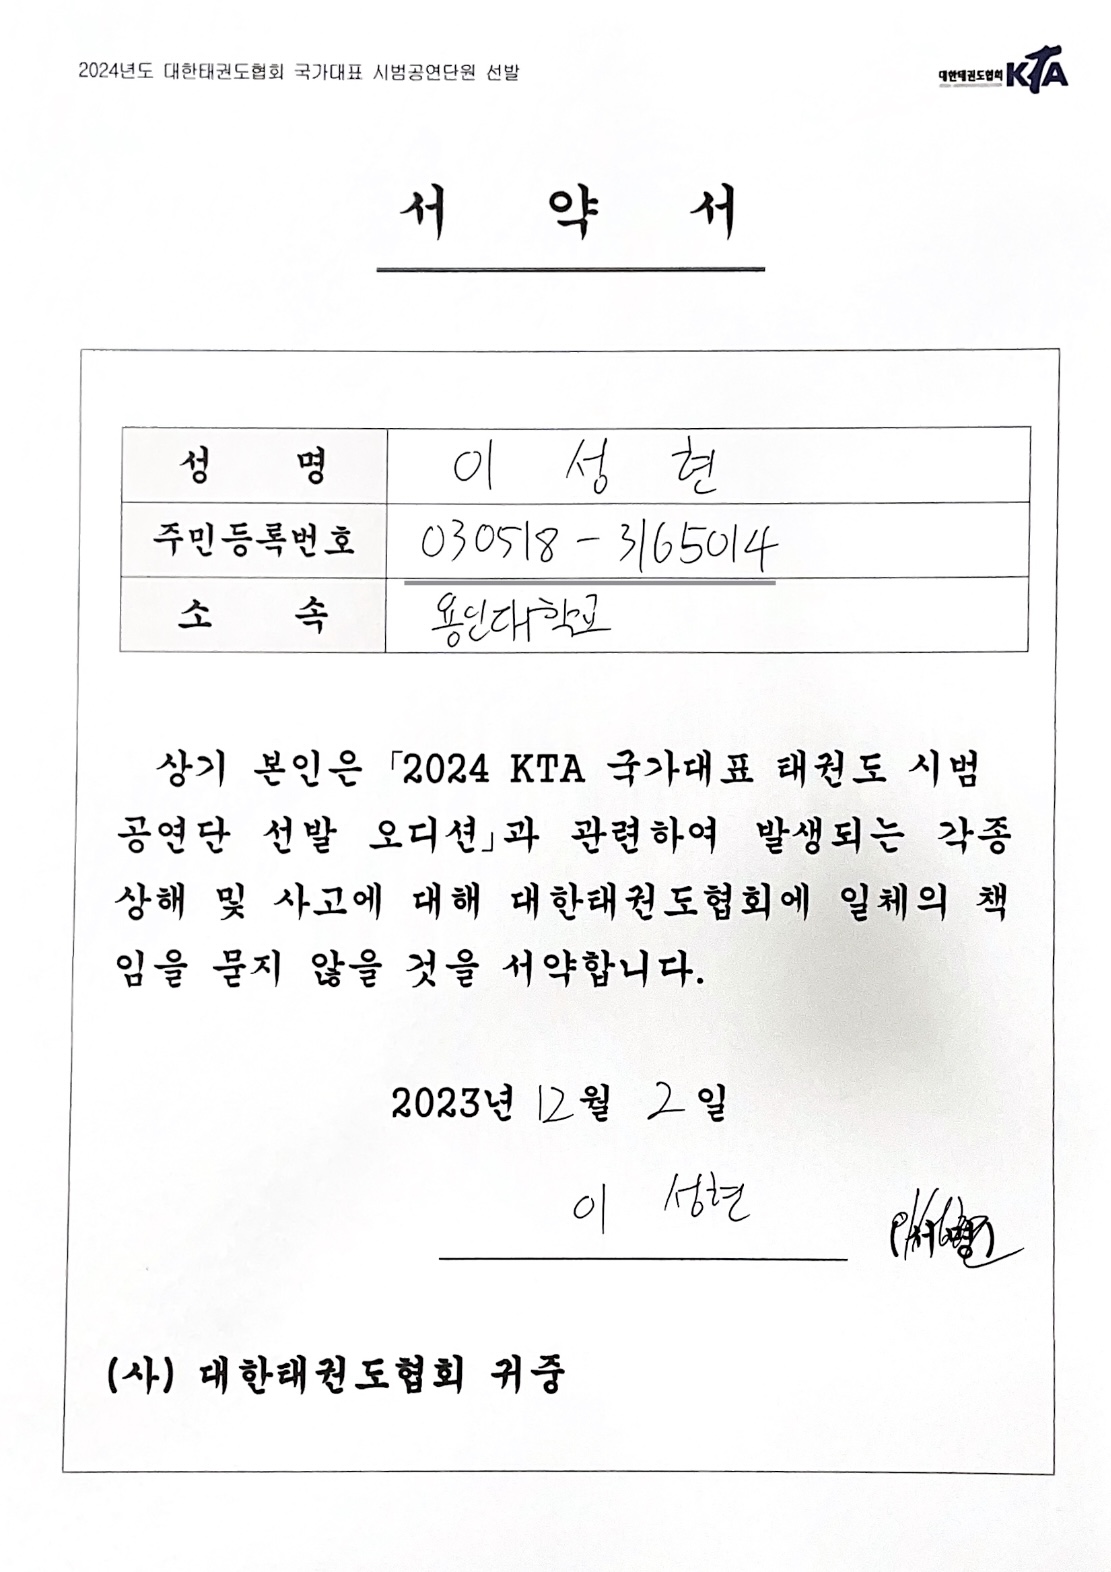 2024년도 대한태권도협회 국가대표 시범공연단원 선발
대한태권도협회 KTA
서 약 서
성 명 이 성 현
주민등록번호 030518 - 3165014
소 속 용인대학교
상기 본인은 「2024 KTA 국가대표 태권도 시범
공연단 선발 오디션」과 관련하여 발생되는 각종
상해 및 사고에 대해 대한태권도협회에 일체의 책
임을 묻지 않을 것을 서약합니다.
2023년 12월 2일
이 성현
(사) 대한태권도협회 귀중